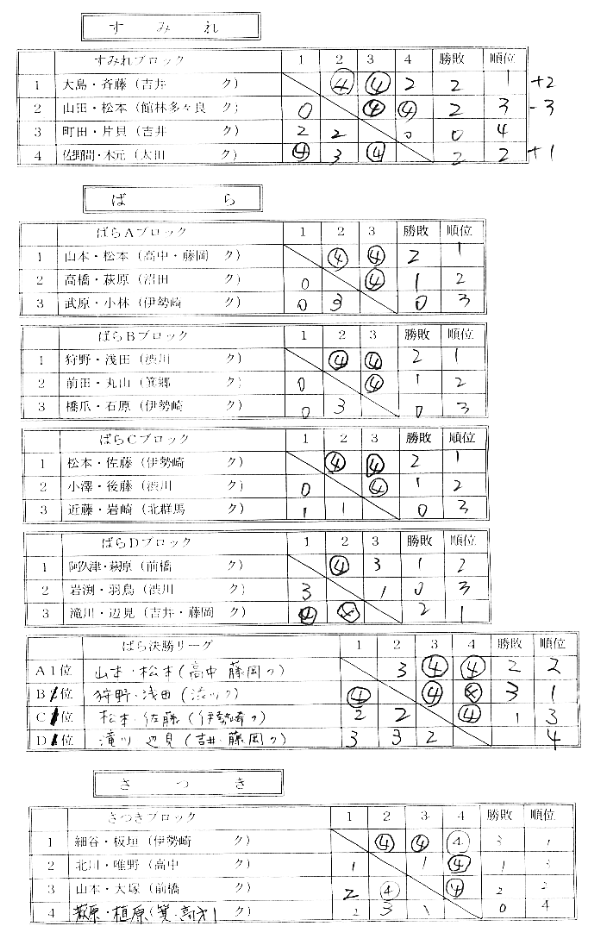 すみれ
すみれブロック 1 2 3 4 勝敗 順位
1 大島・斉藤（吉井 ク） ④ ④ 2 2 1 +2
2 山田・松本（館林多々良 ク） 0 ④ ④ 2 3 -3
3 町田・片貝（吉井 ク） 2 2 0 0 4
4 佐野間・木元（太田 ク） ④ 3 ④ 2 2 +1
ばら
ばらAブロック 1 2 3 勝敗 順位
1 山本・松本（高中・藤岡 ク） ④ ④ 2 1
2 高橋・萩原（沼田 ク） 0 ④ 1 2
3 武原・小林（伊勢崎 ク） 0 3 0 3
ばらBブロック 1 2 3 勝敗 順位
1 狩野・浅田（渋川 ク） ④ ④ 2 1
2 前田・丸山（箕郷 ク） 0 ④ 1 2
3 橋爪・石原（伊勢崎 ク） 0 3 0 3
ばらCブロック 1 2 3 勝敗 順位
1 松本・佐藤（伊勢崎 ク） ④ ④ 2 1
2 小澤・後藤（渋川 ク） 0 ④ 1 2
3 近藤・岩崎（北群馬 ク） 1 1 0 3
ばらDブロック 1 2 3 勝敗 順位
1 阿久津・萩原（前橋 ク） ④ 3 1 2
2 岩渕・羽鳥（渋川 ク） 3 1 0 3
3 滝川・辺見（吉井・藤岡 ク） ④ ④ 2 1
ばら決勝リーグ 1 2 3 4 勝敗 順位
A1位 山本・松本（高中 藤岡ク） 3 ④ ④ 2 2
B1位 狩野・浅田（渋川ク） ④ ④ ④ 3 1
C1位 松本・佐藤（伊勢崎ク） 2 2 ④ 1 3
D1位 滝川 辺見（吉井・藤岡ク） 3 3 2 4
さつき
さつきブロック 1 2 3 4 勝敗 順位
1 細谷・板垣（伊勢崎 ク） ④ ④ ④ 3 1
2 北川・唯野（高中 ク） 1 1 ④ 1 3
3 山本・大塚（前橋 ク） 2 ④ ④ 2 2
4 萩原・植原（箕 ク） 2 3 1 0 4